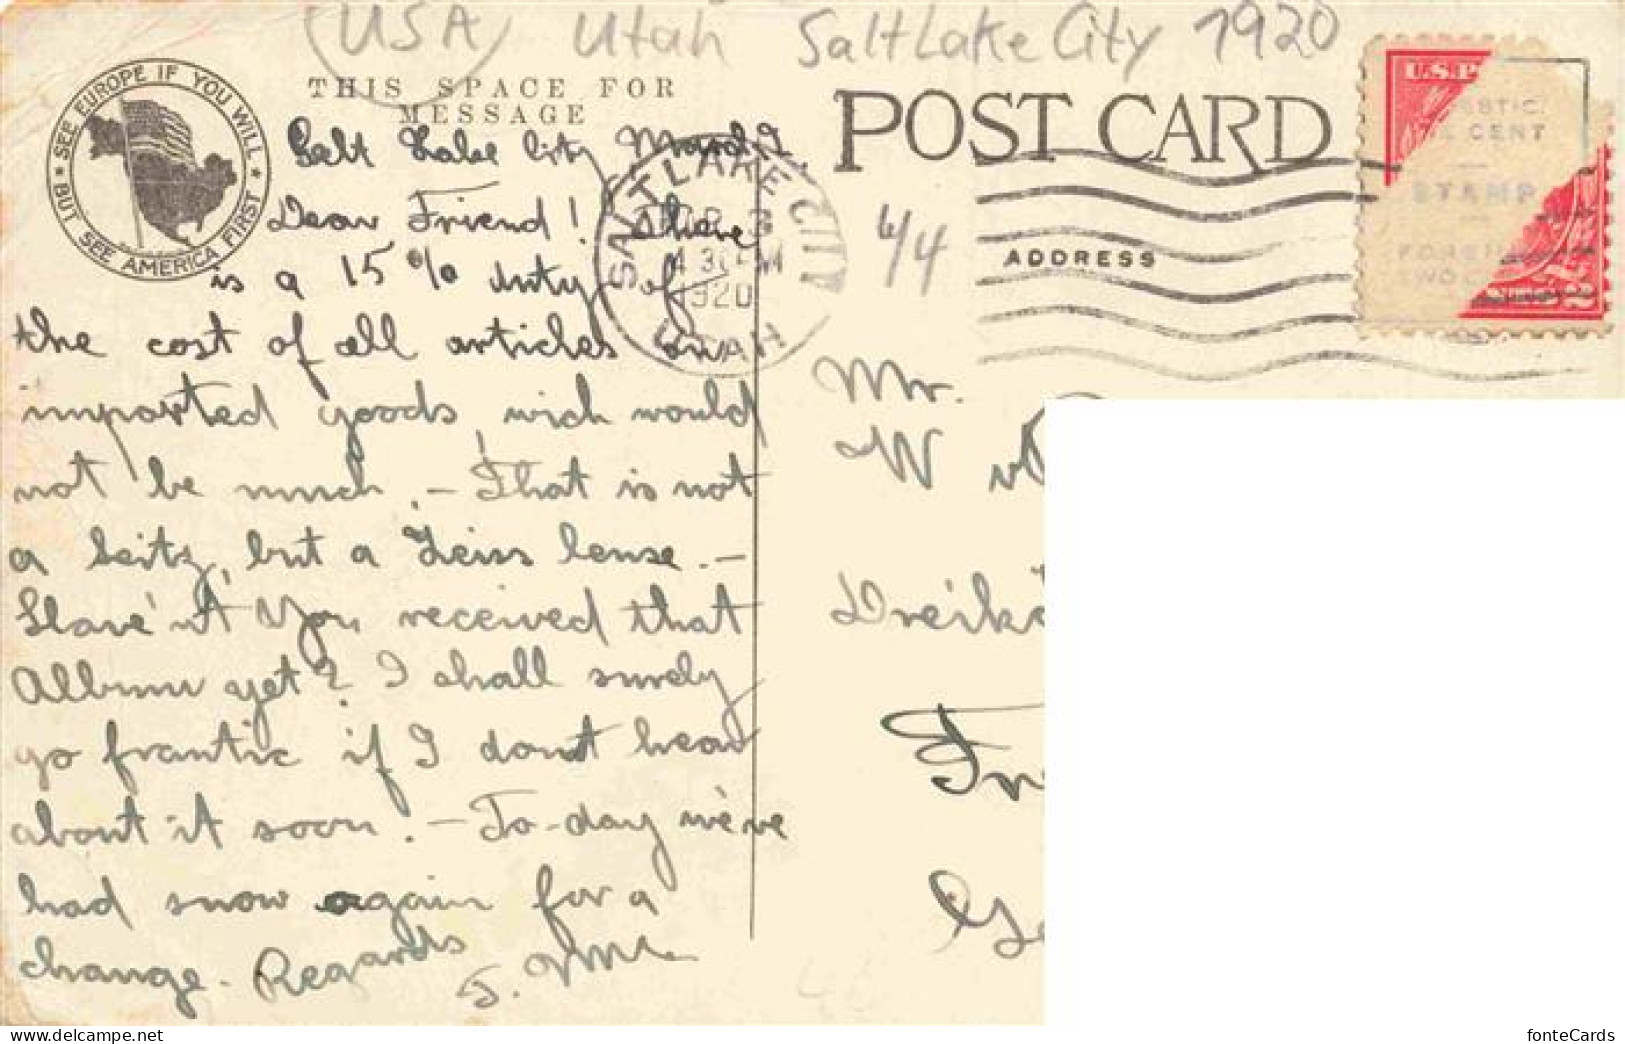 (USA) Utah SaltLake City 1920
THIS SPACE FOR
MESSAGE
★ SEE EUROPE IF YOU WILL ★
BUT SEE AMERICA FIRST
POST CARD
U.S.P
STAMP
SALT LAKE CITY
3
4 30 PM
1920
UTAH
6/4
ADDRESS
Salt Lake City
Dear Friend! There
is a 15% duty of
the cost of all articles on
imported goods, wich would
not be much. – That is not
a Seitz, but a Zeiss lense. –
Have'nt You received that
Album yet? I shall surely
go frantic if I dont hear
about it soon! – To-day we've
had snow again for a
change. Regards
Mr.
W
fonteCards